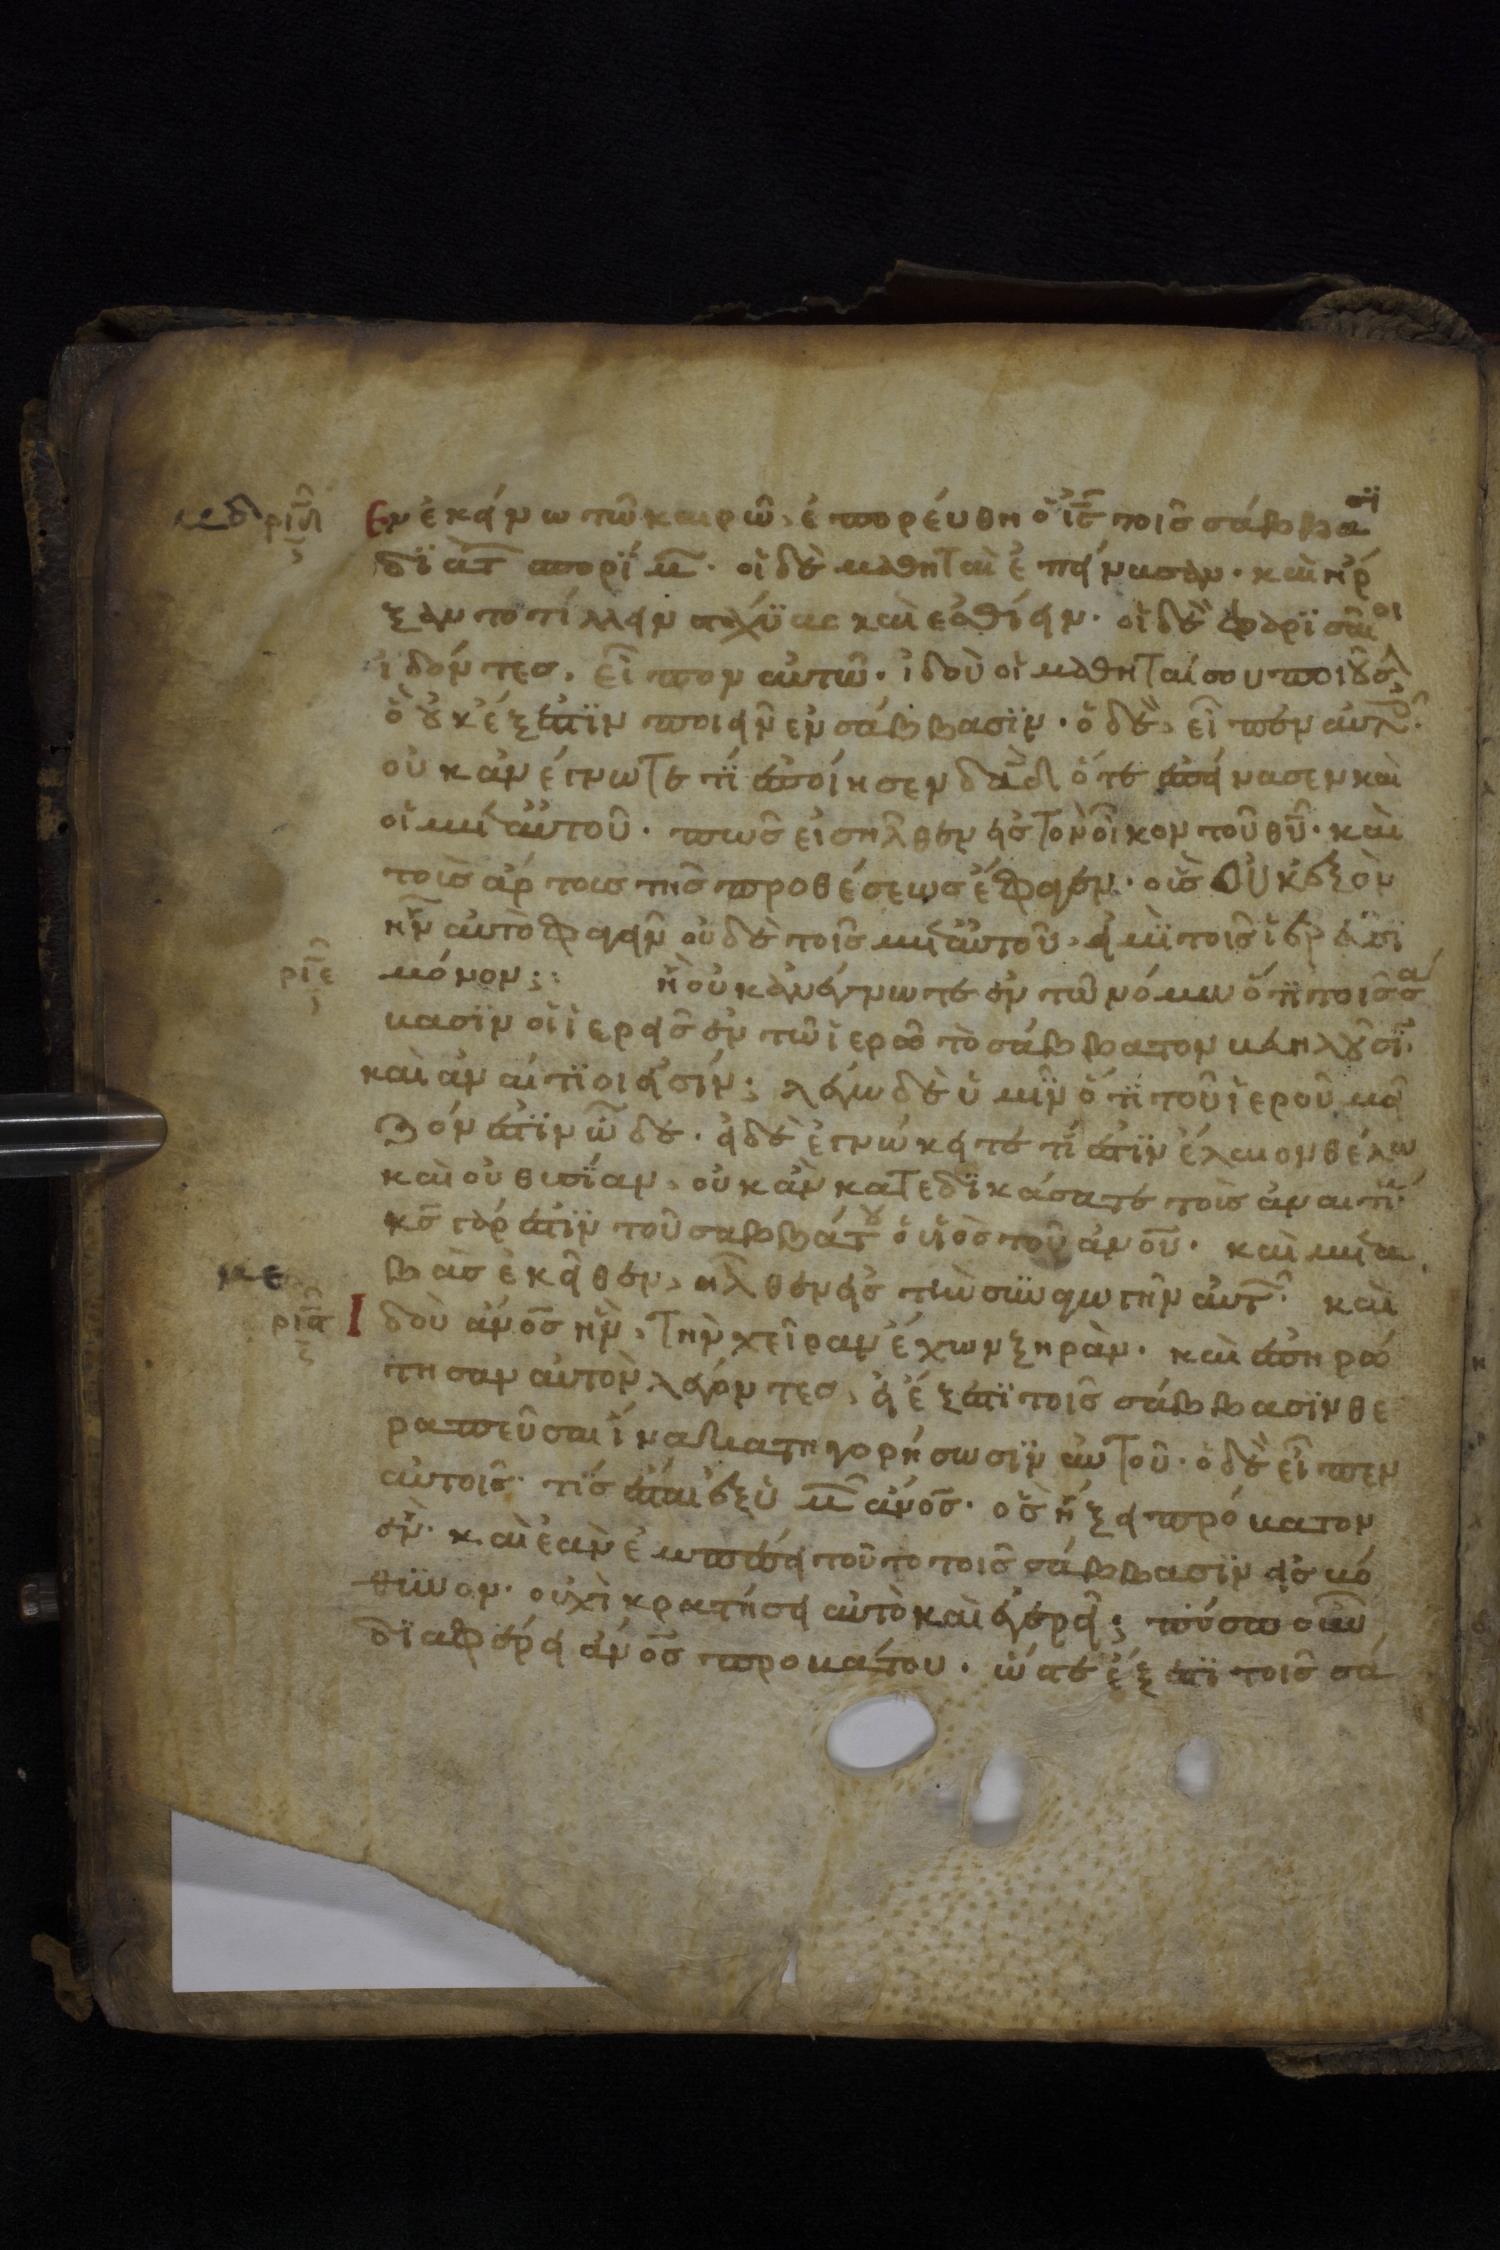 μδ ριδ Ἐν ἐκείνω τῶ καιρῶ, ἐπορεύθη ὁ ἰς τοῖς σάββασϊ
δϊὰ τ σπορϊμ. οἱ δὲ μαθηταὶ ἐπείνασαν. καὶ ἤρ
ξαντο τίλλειν στάχϋας καὶ ἐσθίειν. οἱ δὲ φαρϊσαῖοι
ἰδόντες, εἶπον αὐτῶ. ἰδοὺ οἱ μαθηταί σου ποιοῦσϊ
ὃ οὐκ έξεστϊν ποιεῖν ἐν σάββασϊν. ὁ δὲ, εἶπεν αὐτοῖς.
οὐκ ἀνέγνωτε τϊ ἐποίησεν δαδ ὅτε ἐπείνασεν καὶ
οἱ μετ αὐτοῦ. πῶς εἰσῆλθεν εἰς τὸν οἶκον τοῦ θῦ. καὶ
τοὺς ἄρτους τῆς προθέσεως ἔφαγεν. οἷς οὐκ ἐξὸν
ἦν αὐτὸ φαγεῖν οὐδὲ τοῖς μετ αὐτοῦ. εἰ μὴ τοῖς ἱερεῦσϊ
ριε μόνον;: ἢ οὐκ ἀνέγνωτε ἐν τῶ νόμω ὅτϊ τοῖς σά
βασϊν οἱ ἱερεῖς ἐν τῶ ἱερῶ τὸ σάββατον βεβηλοῦσϊ.
καὶ ἀναίτϊοι εἰσίν; λέγω δὲ ὑμῖν ὅτϊ τοῦ ἱεροῦ μεῖ
ζόν ἐστϊν ὧδε. εἰ δὲ ἐγνώκειτε τί ἐστϊν ἔλεον θέλω
καὶ οὐ θυσϊαν, οὐκ ἂν κατεδϊκάσατε τοὺς ἀναιτϊ
κς γάρ ἐστϊν τοῦ σαββάτου ὁ υἱὸς τοῦ ἀνου. καὶ μετα
με βὰς ἐκεῖθεν, ἦλθεν εἰς τὴν σϋναγωγὴν αὐτ. καὶ
ριϛ Ἰδοὺ ἄνος ἦν, τὴν χεῖραν ἔχων ξηρὰν. καὶ ἐπηρώ
τησαν αὐτὸν λέγοντες, εἰ ἔξεστϊ τοῖς σάββασϊν θε
ραπεῦσαι ἵνα κατηγορήσωσϊν αὐτοῦ. ὁ δὲ εἶπεν
αὐτοῖς. τϊς ἔσται ἐξ ὑμ ἄνος. ὃς ἕξει πρόβατον
ἕν. καὶ ἐὰν ἐμπέσει τοῦτο τοῖς σάββασϊν εἰς βό
θϋνον. οὐχὶ κρατήσει αὐτὸ καὶ ἐγερεῖ; πόσω οὖν
δϊαφέρει ἄνος προβάτου. ὥστε ἔξεστϊ τοῖς σά